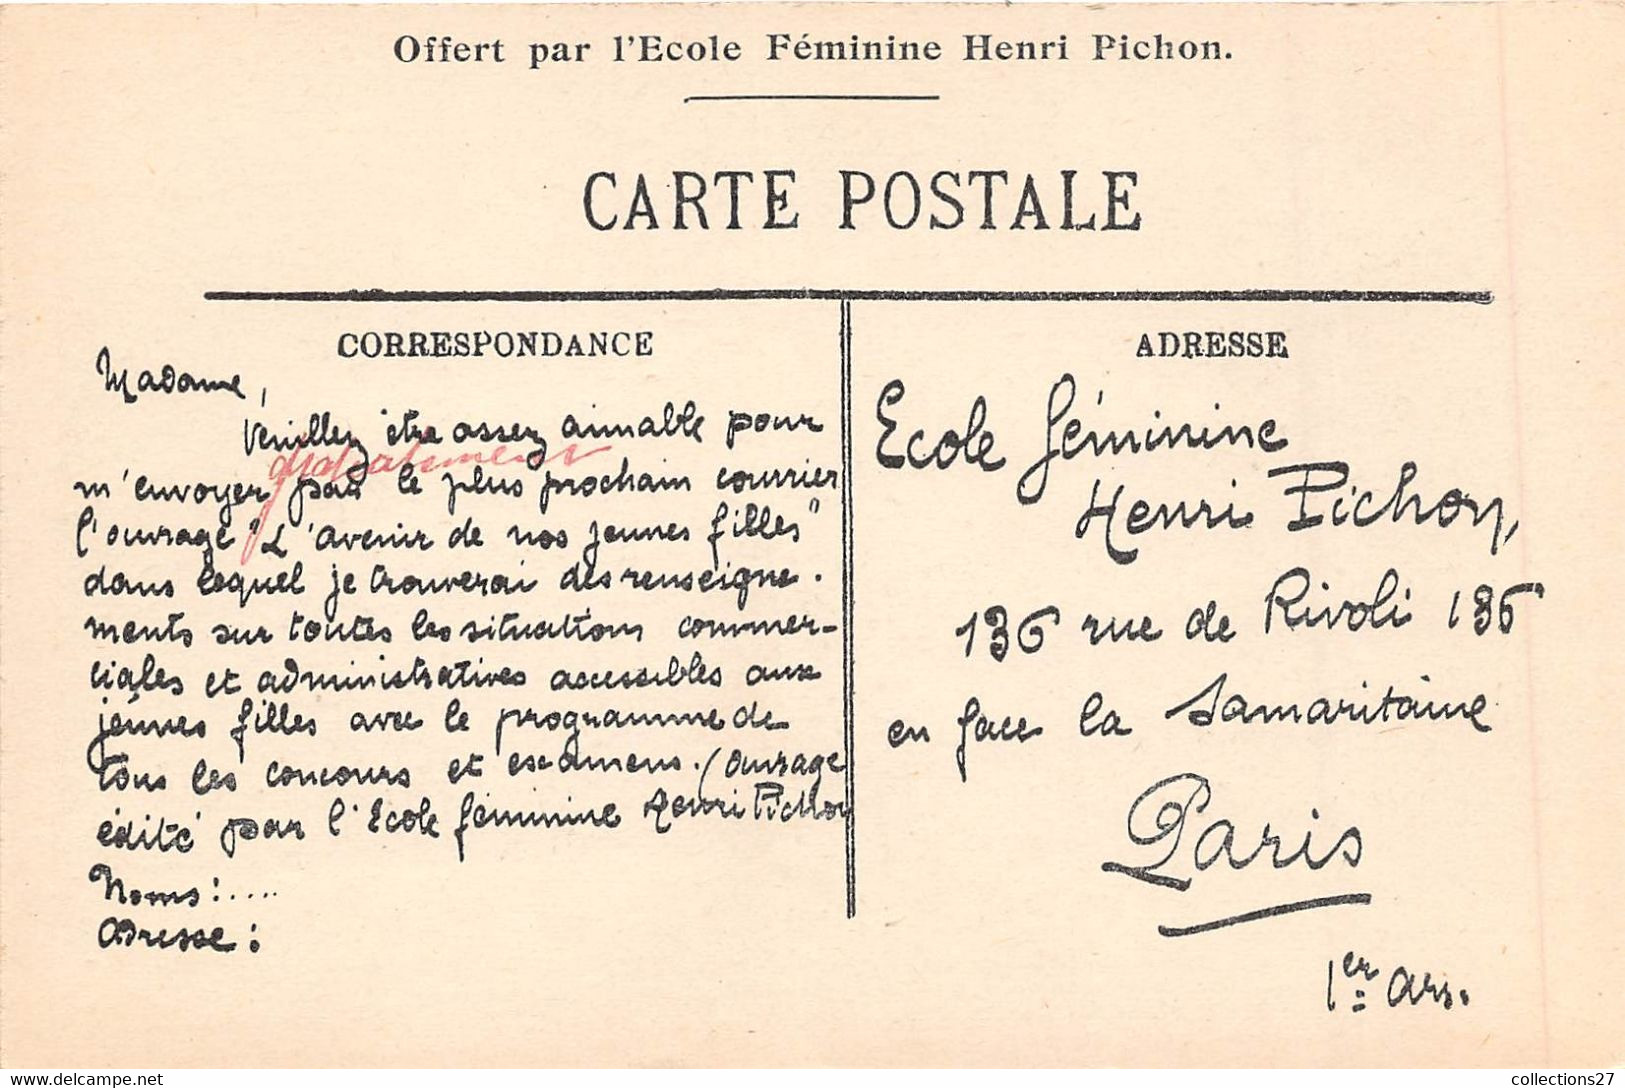 Offert par l'Ecole Féminine Henri Pichon.
CARTE POSTALE
CORRESPONDANCE
Madame,
Veuillez être assez aimable pour
gratuitement
m'envoyer par le plus prochain courrier
l'ouvrage "L'avenir de nos jeunes filles"
dans lequel je trouverai des renseigne-
ments sur toutes les situations commer-
ciales et administratives accessibles aux
jeunes filles avec le programme de
tous les concours et examens. (Ouvrage
édité par l'Ecole féminine Henri Pichon
Noms:....
Adresse:
ADRESSE
Ecole féminine
Henri Pichon,
136 rue de Rivoli 136
en face la Samaritaine
Paris
1er Arr.
collections27